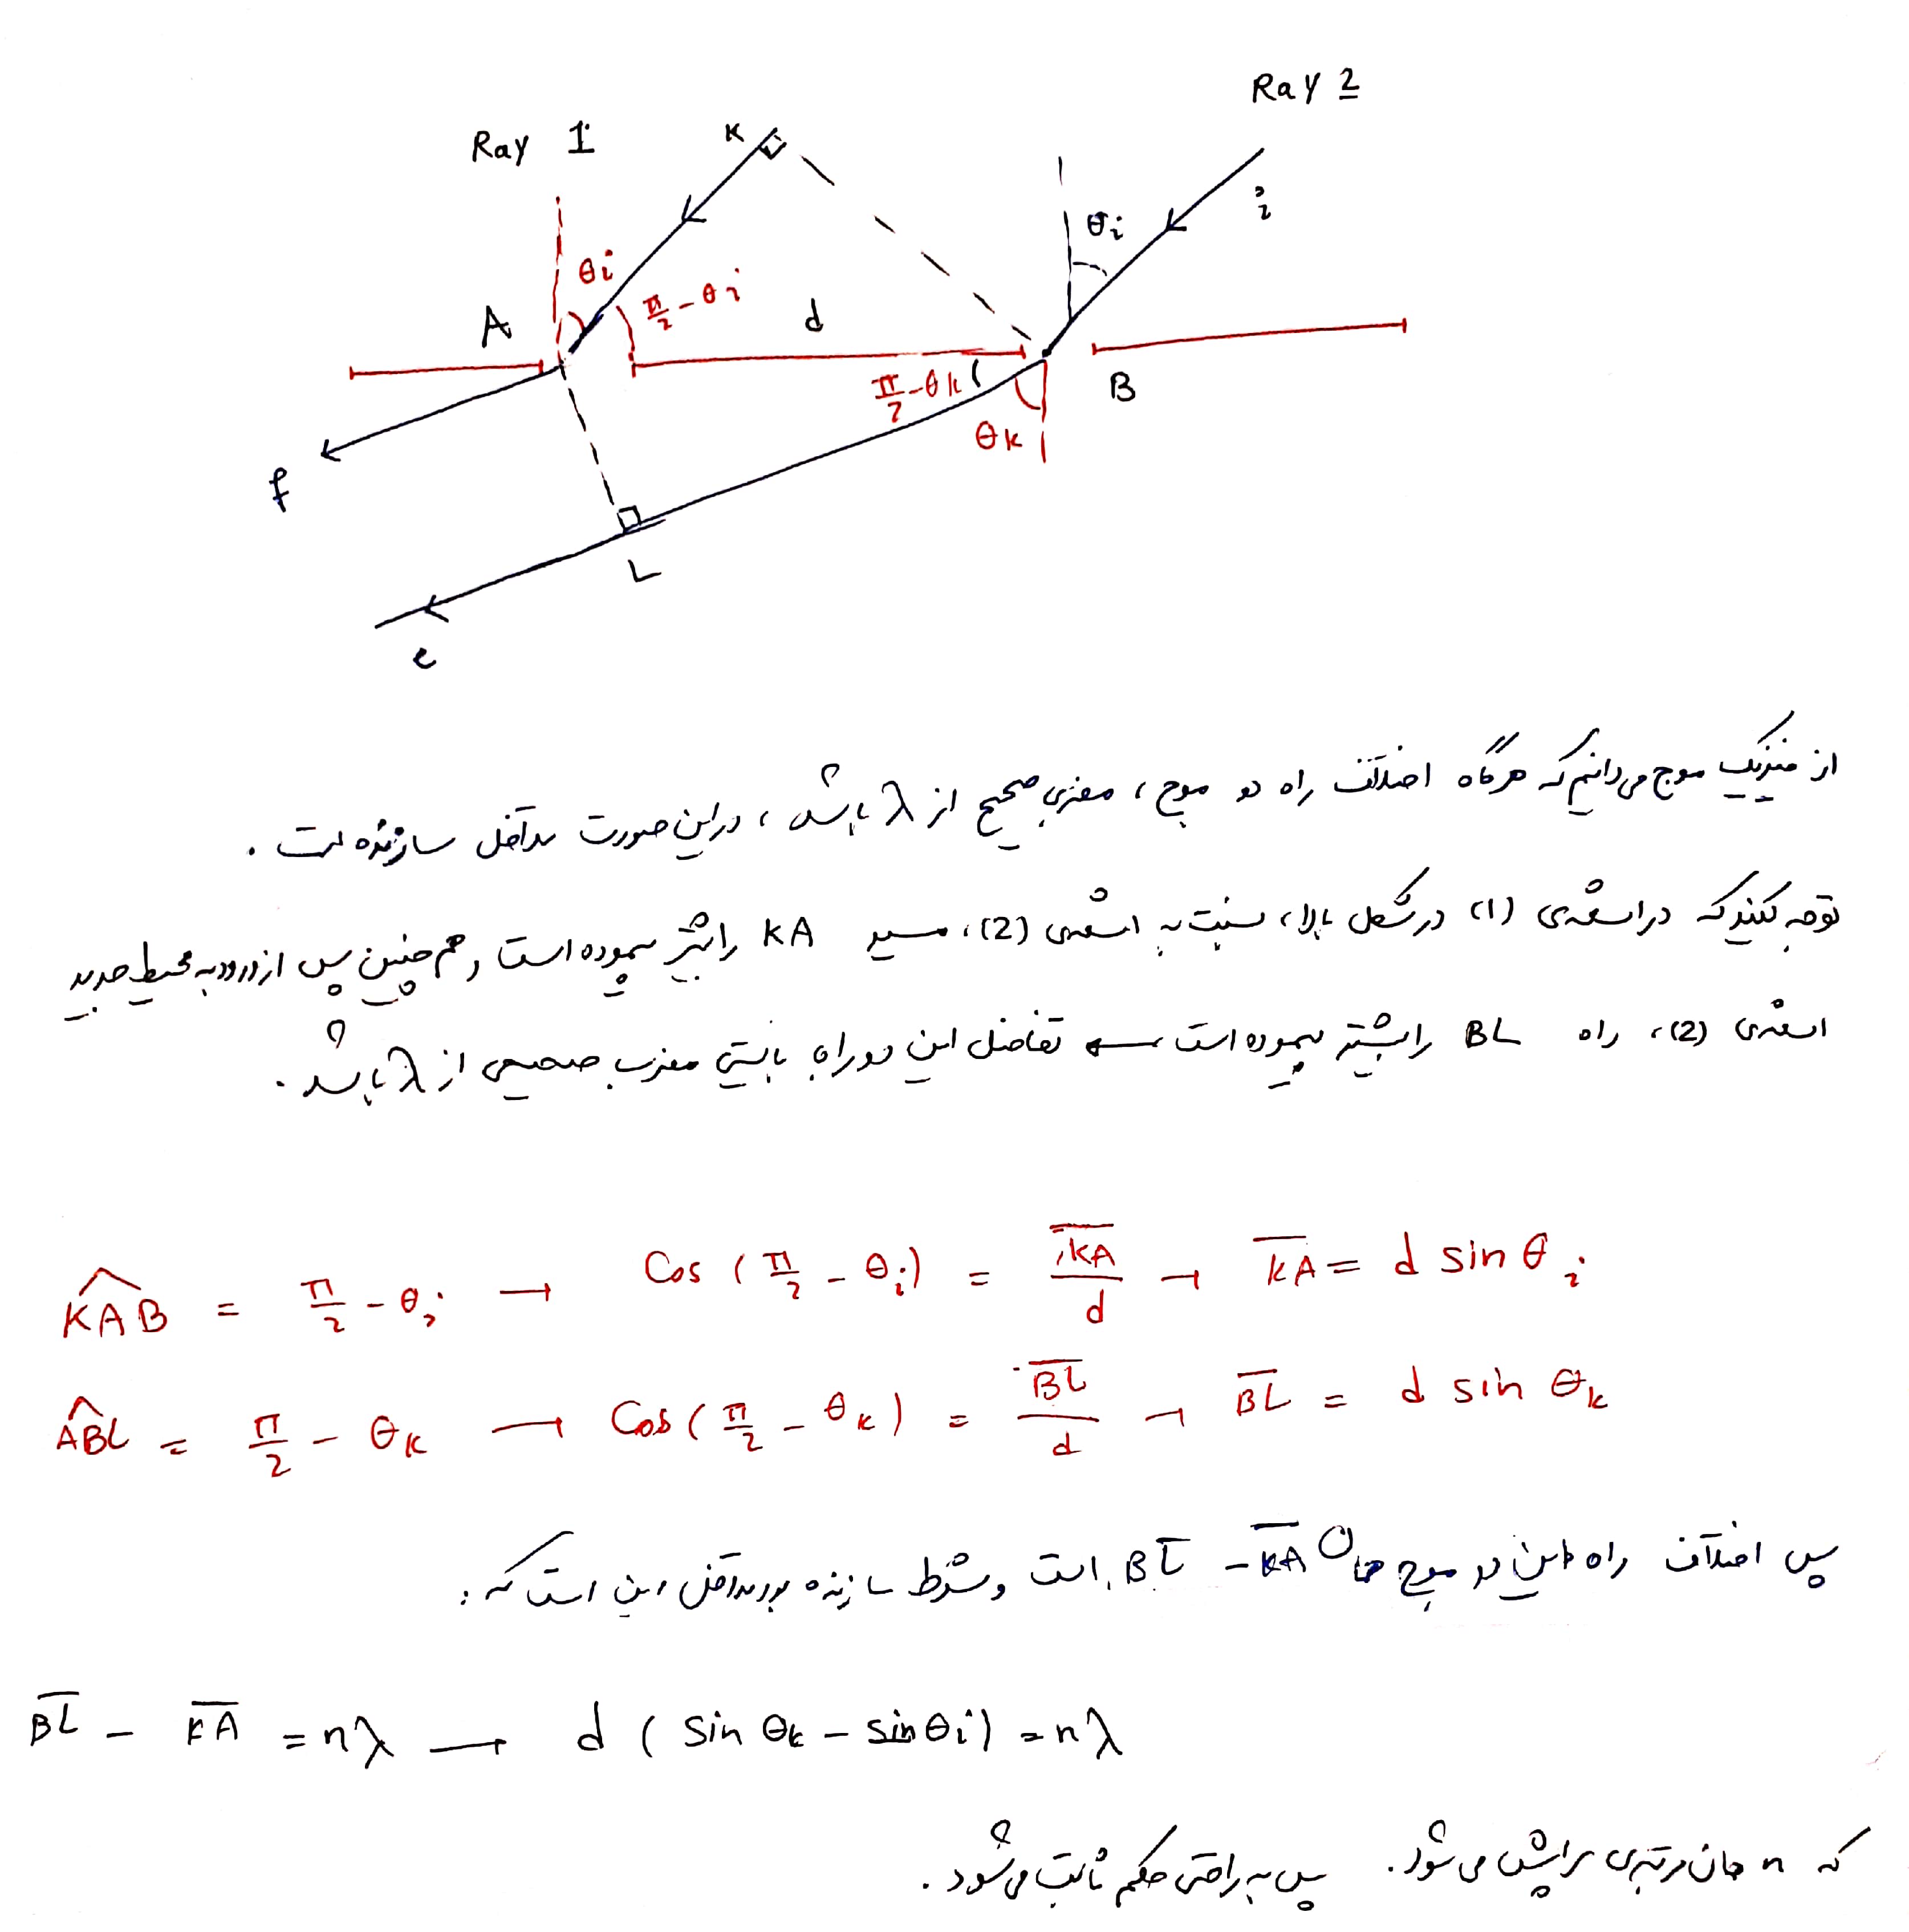 Ray 2
Ray 1
K
i
θi
θi
π/2 - θi
A
d
π/2 - θk
B
θk
f
L
e
از فیزیک موج می‌دانیم که هرگاه اختلاف راه دو موج، مضربی صحیح از λ باشد، در این صورت تداخل سازنده است.
توجه کنید که در اشعه‌ی (1) در شکل بالا، نسبت به اشعه‌ی (2)، مسیر KA را بیشتر پیموده است و هم چنین پس از ورود به محیط جدید
اشعه‌ی (2)، راه BL را بیشتر پیموده است ← تفاضل این دو راه بایستی مضرب صحیحی از λ باشد.
K̂AB = π/2 - θi → Cos (π/2 - θi) = K̅A̅/d → K̅A̅ = d sin θi
AB̂L = π/2 - θk → Cos (π/2 - θk) = B̅L̅/d → B̅L̅ = d sin θk
پس اختلاف راه این دو موج همان B̅L̅ - K̅A̅ است و شرط سازنده بودن تداخل این است که:
B̅L̅ - K̅A̅ = nλ → d (sin θk - sin θi) = nλ
که n همان مرتبه‌ی پراش می‌شود. پس به راحتی حکم ثابت می‌شود.